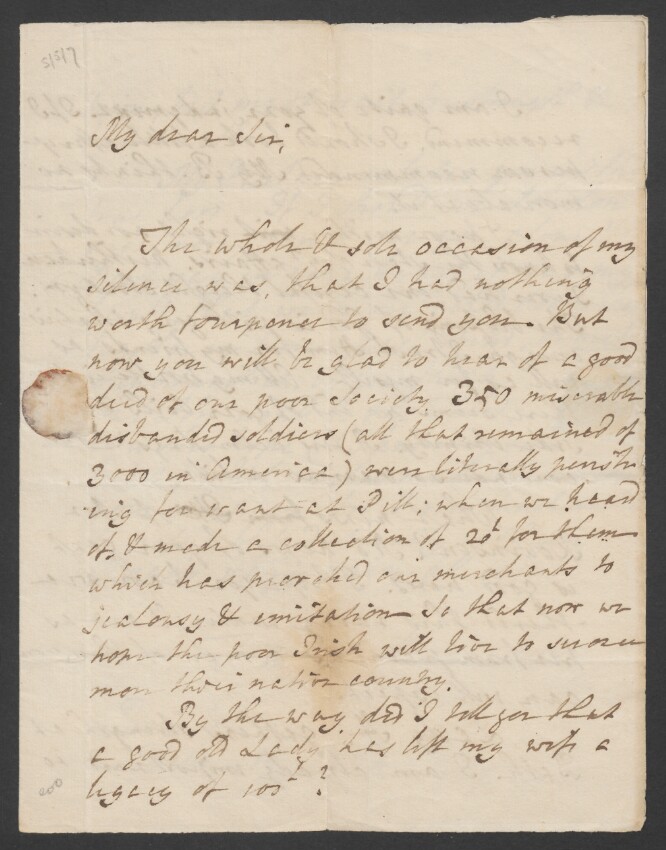 My dear Sir,
The whole & sole occasion of my
silence was, that I had nothing
worth fourpence to send you. But
now you will be glad to hear of a good
deed of our poor Society. 350 miserable
disbanded soldiers (all that remained of
3000 in America) were literally perish-
ing for want at Pill; when we heard
of, & made a collection of 20£ for them
which has provoked our merchants to
jealousy & emitation So that now we
hope the poor Irish will live to see once
more their native country.
By the way, did I tell you that
a good old Lady has left my wife a
legacy of